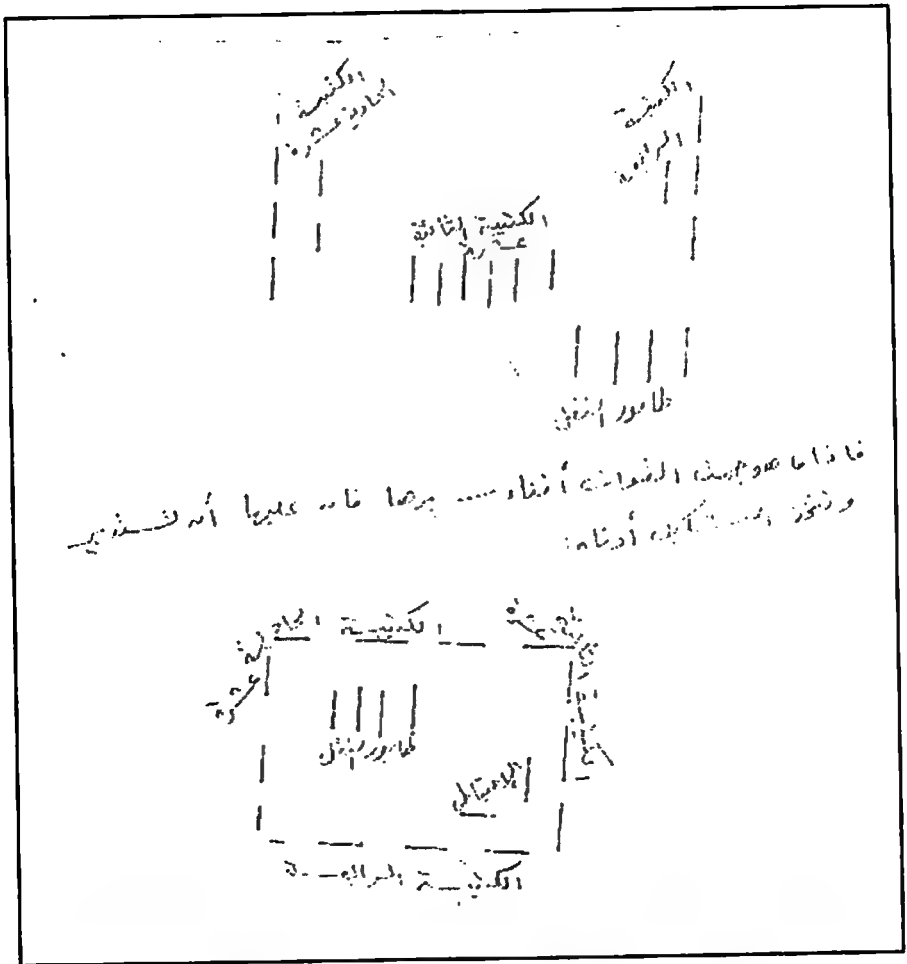 الكتيبة
الحادية عشرة
الكتيبة
الرابعة
الكتيبة الثانية
عشرة
طابور النقل
فاذا ما هوجمت القوات أثناء .... يرها فانه عليها أنه تستدير
وتتخذ التشكيل أدناه:
الكتيبة الحادية
عشرة
الكتيبة الثانية
عشرة
طابور النقل
الاحتياطي
الكتيبة الرابعة